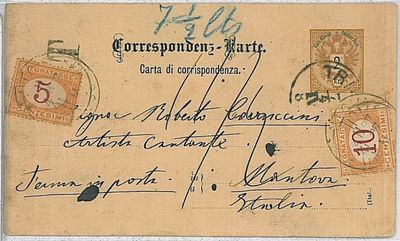 7 1/2 Cts
T
Correspondenz-Karte.
Carta di corrispondenza.
SEGNATASSE
5
CENTESIMI
Signor Roberto
Artista Cantante
Ferma in posta
Mantova
Italia
SEGNATASSE
10
CENTESIMI
(Ital.)